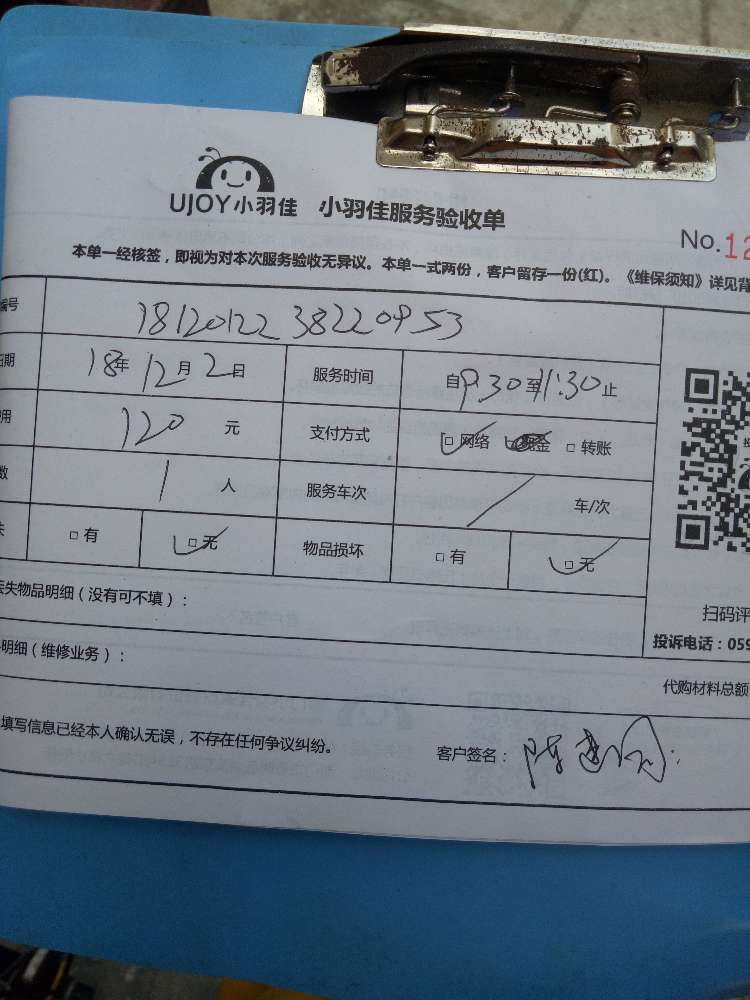 UJOY小羽佳 小羽佳服务验收单
No.12
本单一经核签，即视为对本次服务验收无异议。本单一式两份，客户留存一份(红)。《维保须知》详见背
编号 18120122 38220953
日期 18年12月2日 服务时间 自9:30至11:30止
用 120 元 支付方式 网络 现金 转账
数 1 人 服务车次 / 车/次
失 有 无 物品损坏 有 无
丢失物品明细（没有可不填）：
扫码评
投诉电话：059
明细（维修业务）：
代购材料总额
填写信息已经本人确认无误，不存在任何争议纠纷。 客户签名：陈建